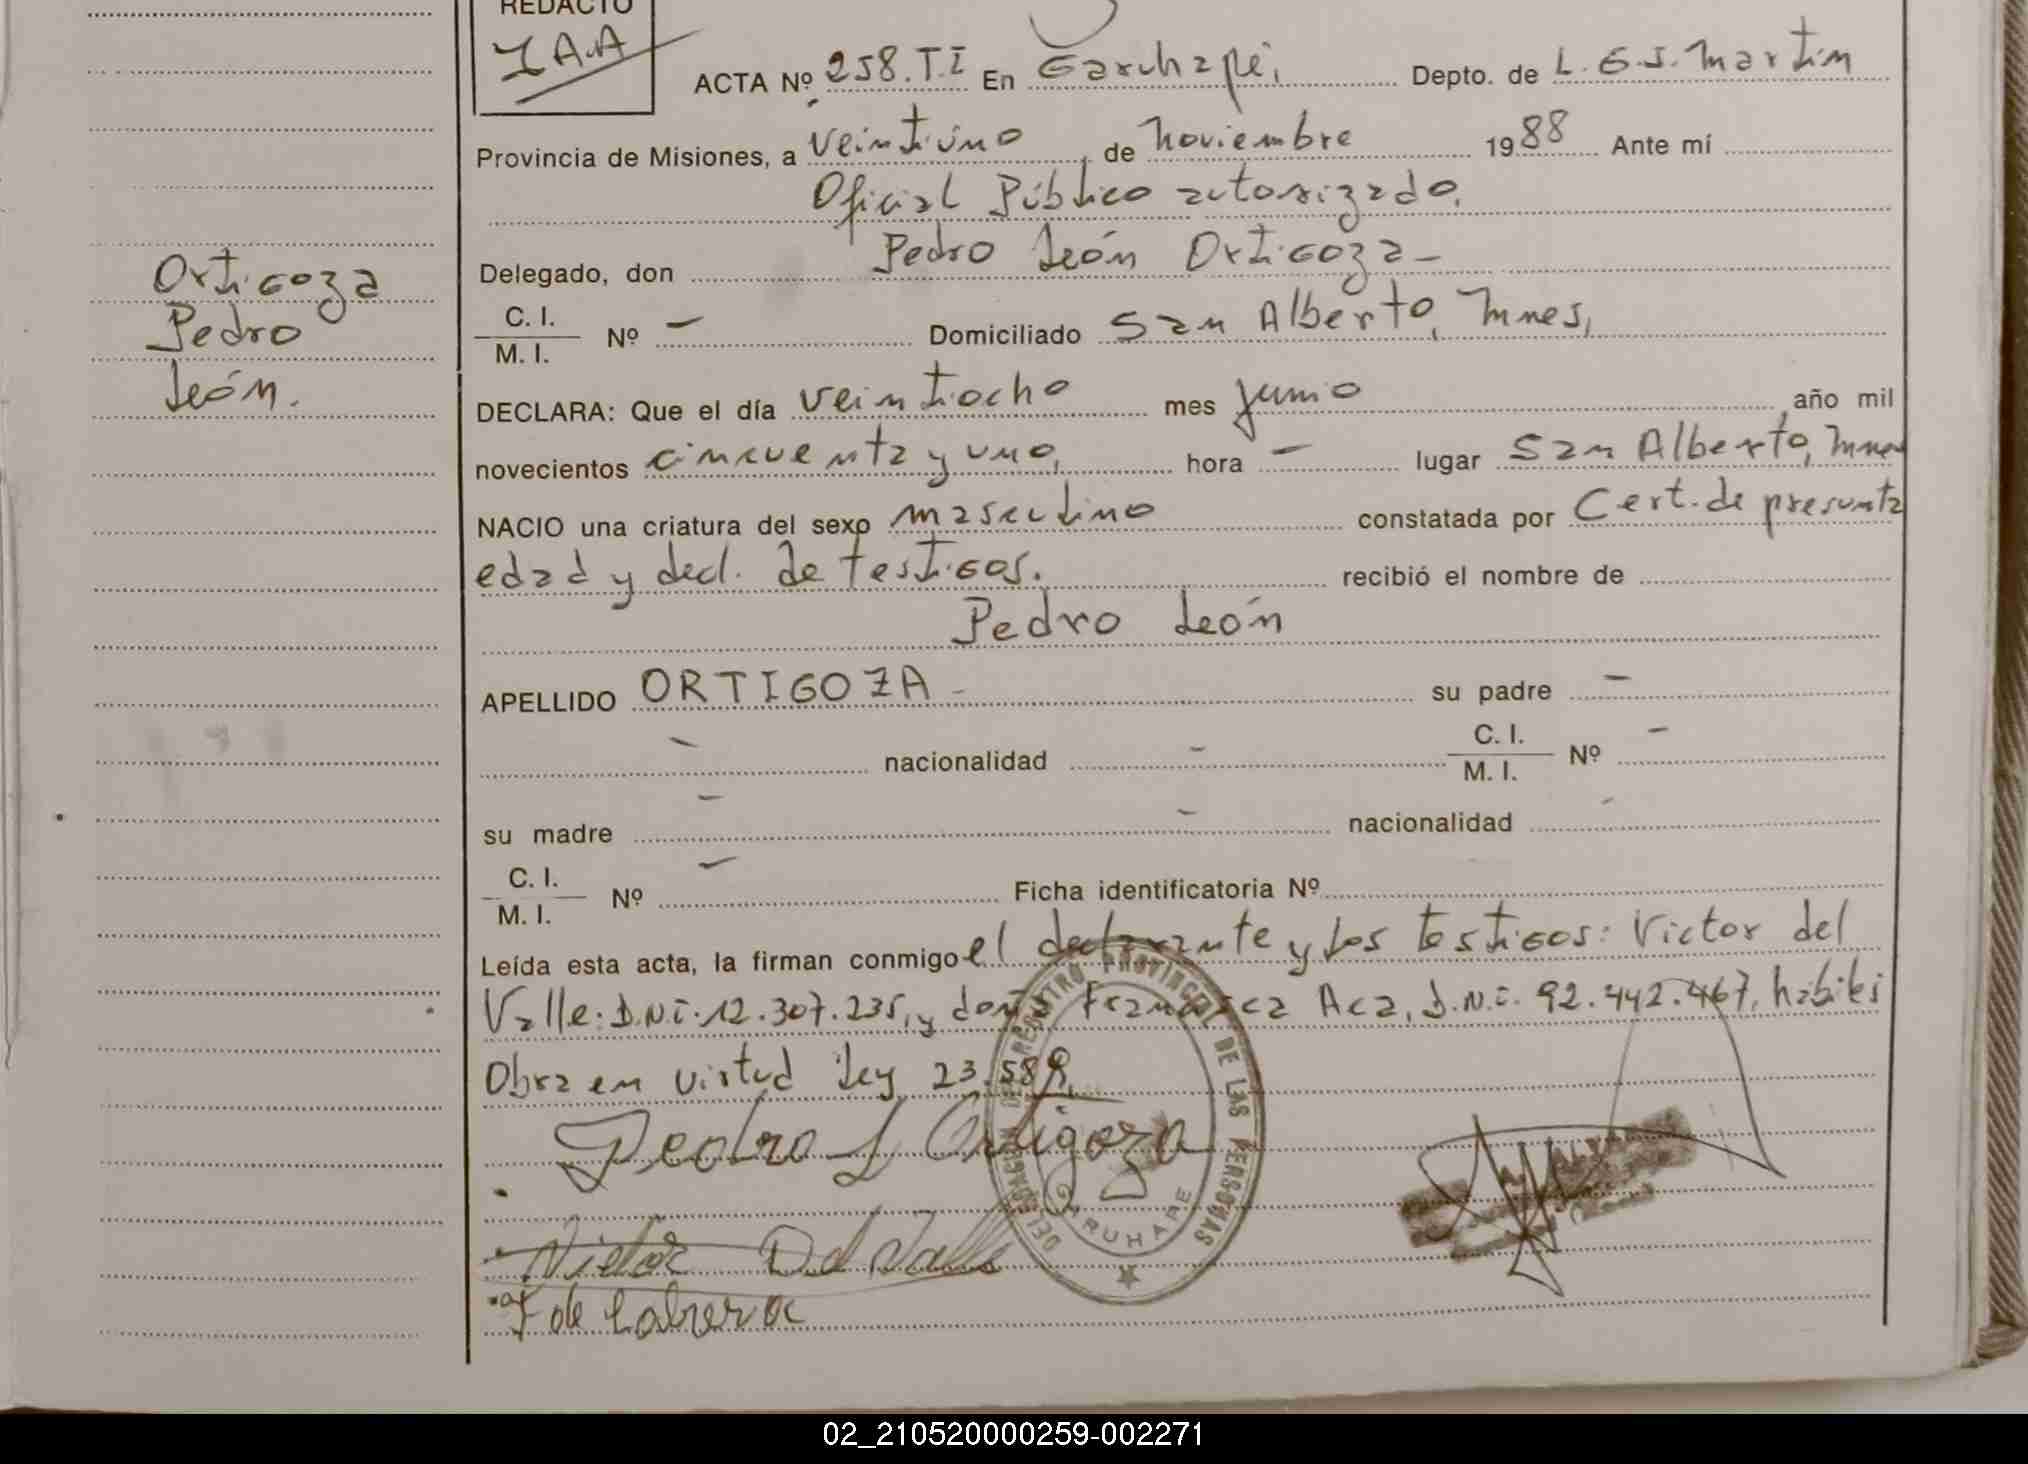 REDACTO
I A.A
ACTA Nº 258.T.I En Garuhapé, Depto. de L. G. S. Martín
Provincia de Misiones, a veintiuno de noviembre 1988 Ante mí
Oficial Público autorizado.
Delegado, don Pedro León Ortigoza -
Ortigoza
Pedro
León.
C. I.
M. I. Nº - Domiciliado San Alberto, Mnes,
DECLARA: Que el día veintiocho mes junio, año mil
novecientos cincuenta y uno, hora - lugar San Alberto, Mnes
NACIO una criatura del sexo masculino constatada por Cert. de presunta
edad y decl. de testigos. recibió el nombre de
Pedro León
APELLIDO ORTIGOZA - su padre -
- nacionalidad - C. I.
M. I. Nº -
su madre - - nacionalidad -
C. I.
M. I. Nº - Ficha identificatoria Nº
Leída esta acta, la firman conmigo el declarante y los testigos: Victor del
Valle: D.N.I. 12.307.235, y doña Francisca Aca, D.N.I. 92.442.467, hábiles
Obra en virtud Ley 23.589.
Pedro L Ortigoza
Victor Del Valle
F de Cabrera
DELEGACION DEL REGISTRO PROVINCIAL DE LAS PERSONAS
GARUHAPE
02_210520000259-002271